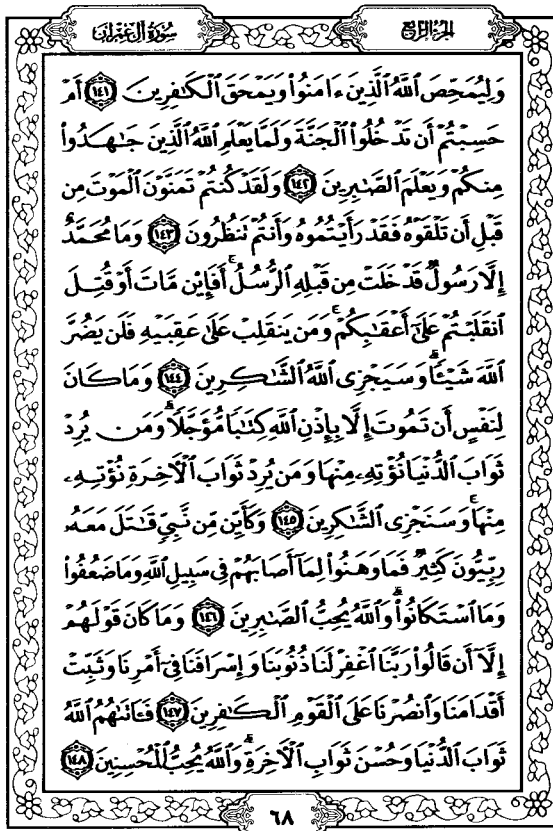 الجزء الرابع
سورة آل عمران
وَلِيُمَحِّصَ ٱللَّهُ ٱلَّذِينَ ءَامَنُوا۟ وَيَمْحَقَ ٱلْكَٰفِرِينَ ١٤١ أَمْ
حَسِبْتُمْ أَن تَدْخُلُوا۟ ٱلْجَنَّةَ وَلَمَّا يَعْلَمِ ٱللَّهُ ٱلَّذِينَ جَٰهَدُوا۟
مِنكُمْ وَيَعْلَمَ ٱلصَّٰبِرِينَ ١٤٢ وَلَقَدْ كُنتُمْ تَمَنَّوْنَ ٱلْمَوْتَ مِن
قَبْلِ أَن تَلْقَوْهُ فَقَدْ رَأَيْتُمُوهُ وَأَنتُمْ تَنظُرُونَ ١٤٣ وَمَا مُحَمَّدٌ
إِلَّا رَسُولٌ قَدْ خَلَتْ مِن قَبْلِهِ ٱلرُّسُلُ ۚ أَفَإِي۟ن مَّاتَ أَوْ قُتِلَ
ٱنقَلَبْتُمْ عَلَىٰٓ أَعْقَٰبِكُمْ ۚ وَمَن يَنقَلِبْ عَلَىٰ عَقِبَيْهِ فَلَن يَضُرَّ
ٱللَّهَ شَيْـًٔا ۗ وَسَيَجْزِى ٱللَّهُ ٱلشَّٰكِرِينَ ١٤٤ وَمَا كَانَ
لِنَفْسٍ أَن تَمُوتَ إِلَّا بِإِذْنِ ٱللَّهِ كِتَٰبًا مُّؤَجَّلًا ۗ وَمَن يُرِدْ
ثَوَابَ ٱلدُّنْيَا نُؤْتِهِۦ مِنْهَا وَمَن يُرِدْ ثَوَابَ ٱلْءَاخِرَةِ نُؤْتِهِۦ
مِنْهَا ۚ وَسَنَجْزِى ٱلشَّٰكِرِينَ ١٤٥ وَكَأَيِّن مِّن نَّبِىٍّ قَٰتَلَ مَعَهُۥ
رِبِّيُّونَ كَثِيرٌ فَمَا وَهَنُوا۟ لِمَآ أَصَابَهُمْ فِى سَبِيلِ ٱللَّهِ وَمَا ضَعُفُوا۟
وَمَا ٱسْتَكَانُوا۟ ۗ وَٱللَّهُ يُحِبُّ ٱلصَّٰبِرِينَ ١٤٦ وَمَا كَانَ قَوْلَهُمْ
إِلَّآ أَن قَالُوا۟ رَبَّنَا ٱغْفِرْ لَنَا ذُنُوبَنَا وَإِسْرَافَنَا فِىٓ أَمْرِنَا وَثَبِّتْ
أَقْدَامَنَا وَٱنصُرْنَا عَلَى ٱلْقَوْمِ ٱلْكَٰفِرِينَ ١٤٧ فَـَٔاتَىٰهُمُ ٱللَّهُ
ثَوَابَ ٱلدُّنْيَا وَحُسْنَ ثَوَابِ ٱلْءَاخِرَةِ ۗ وَٱللَّهُ يُحِبُّ ٱلْمُحْسِنِينَ ١٤٨
٦٨